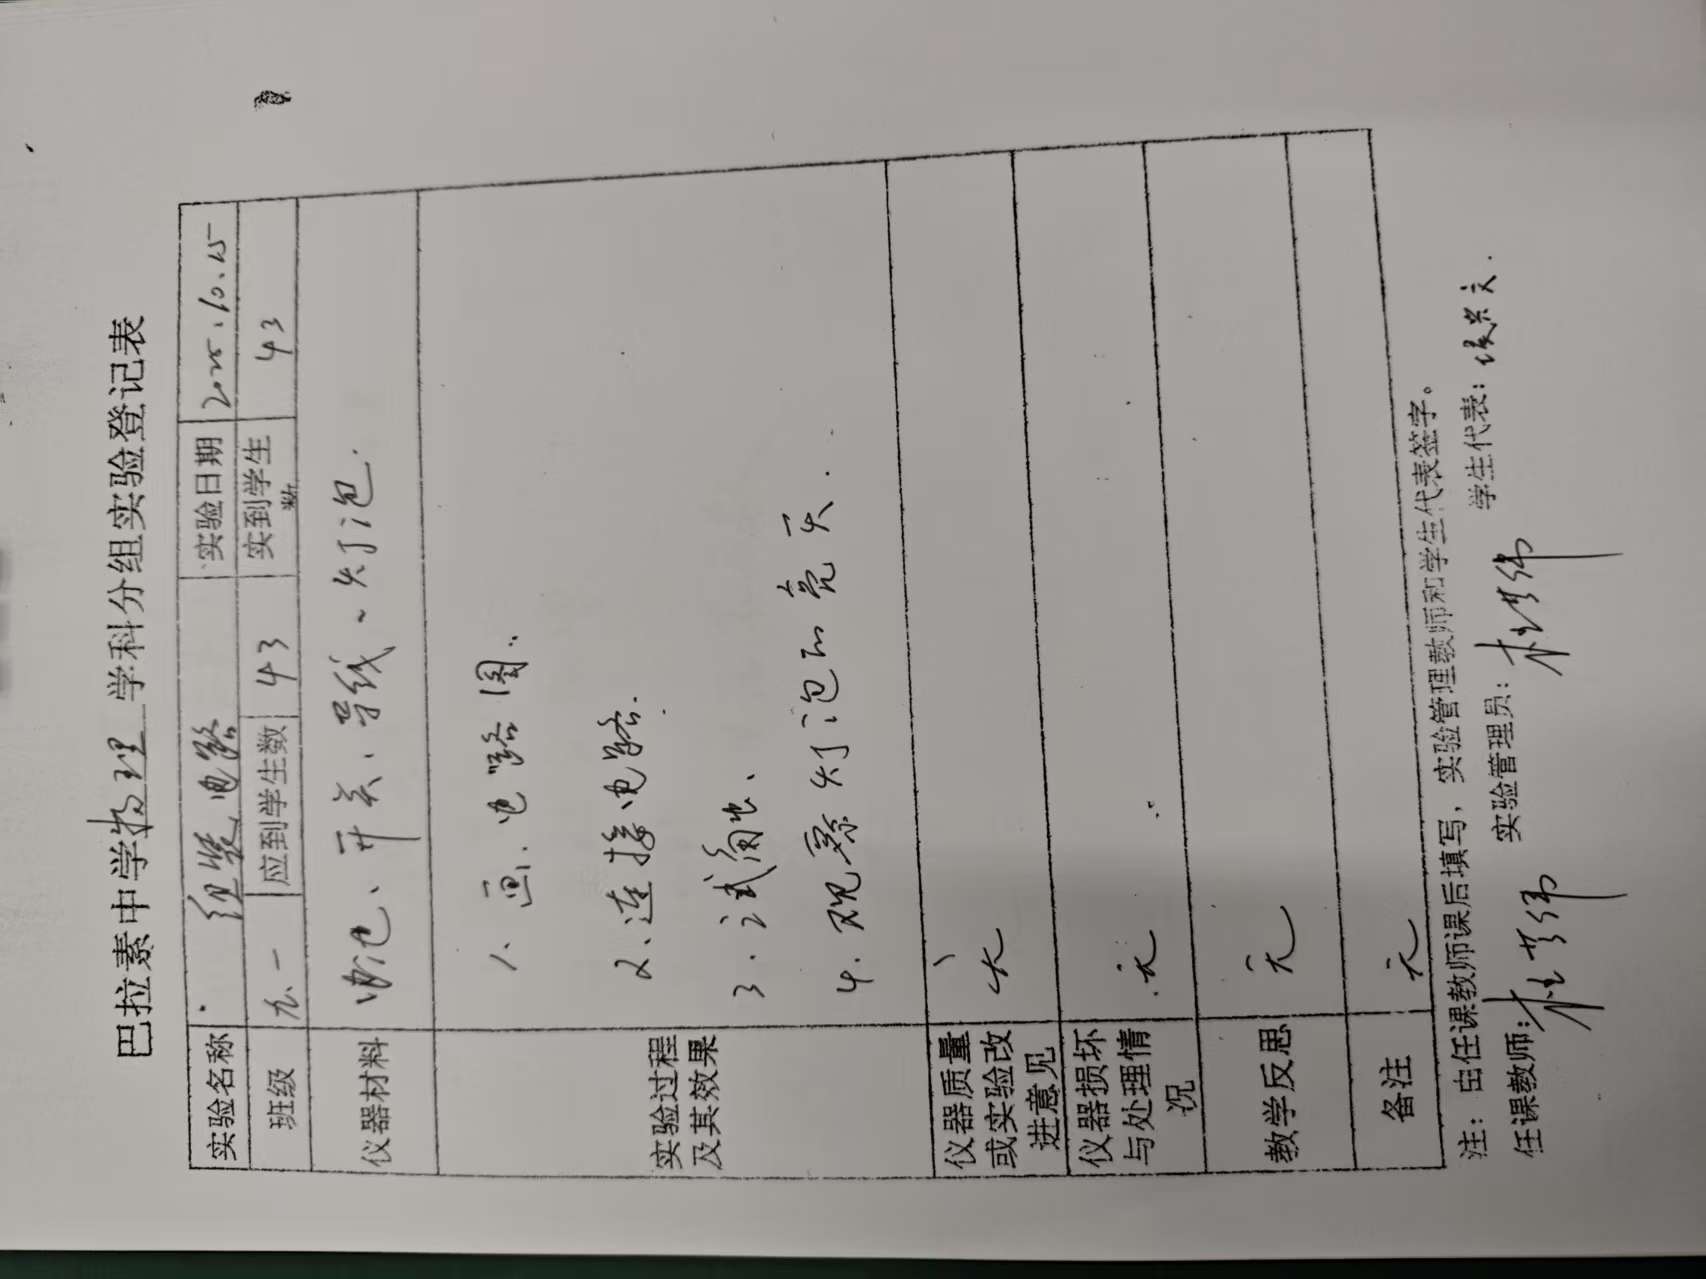 巴拉素中学物理学科分组实验登记表
实验名称 组装电路 实验日期 2025.10.15
班级 九.一 应到学生数 43 实到学生数 43
仪器材料 电池、开关、导线、灯泡.
实验过程及其效果
1、画电路图.
2、连接电路.
3、试触.
4、观察灯泡的亮灭.
仪器质量或实验改进意见
仪器损坏与处理情况 无
教学反思 无
备注 无
注：由任课教师课后填写，实验管理教师和学生代表签字。
任课教师： 实验管理员： 学生代表：